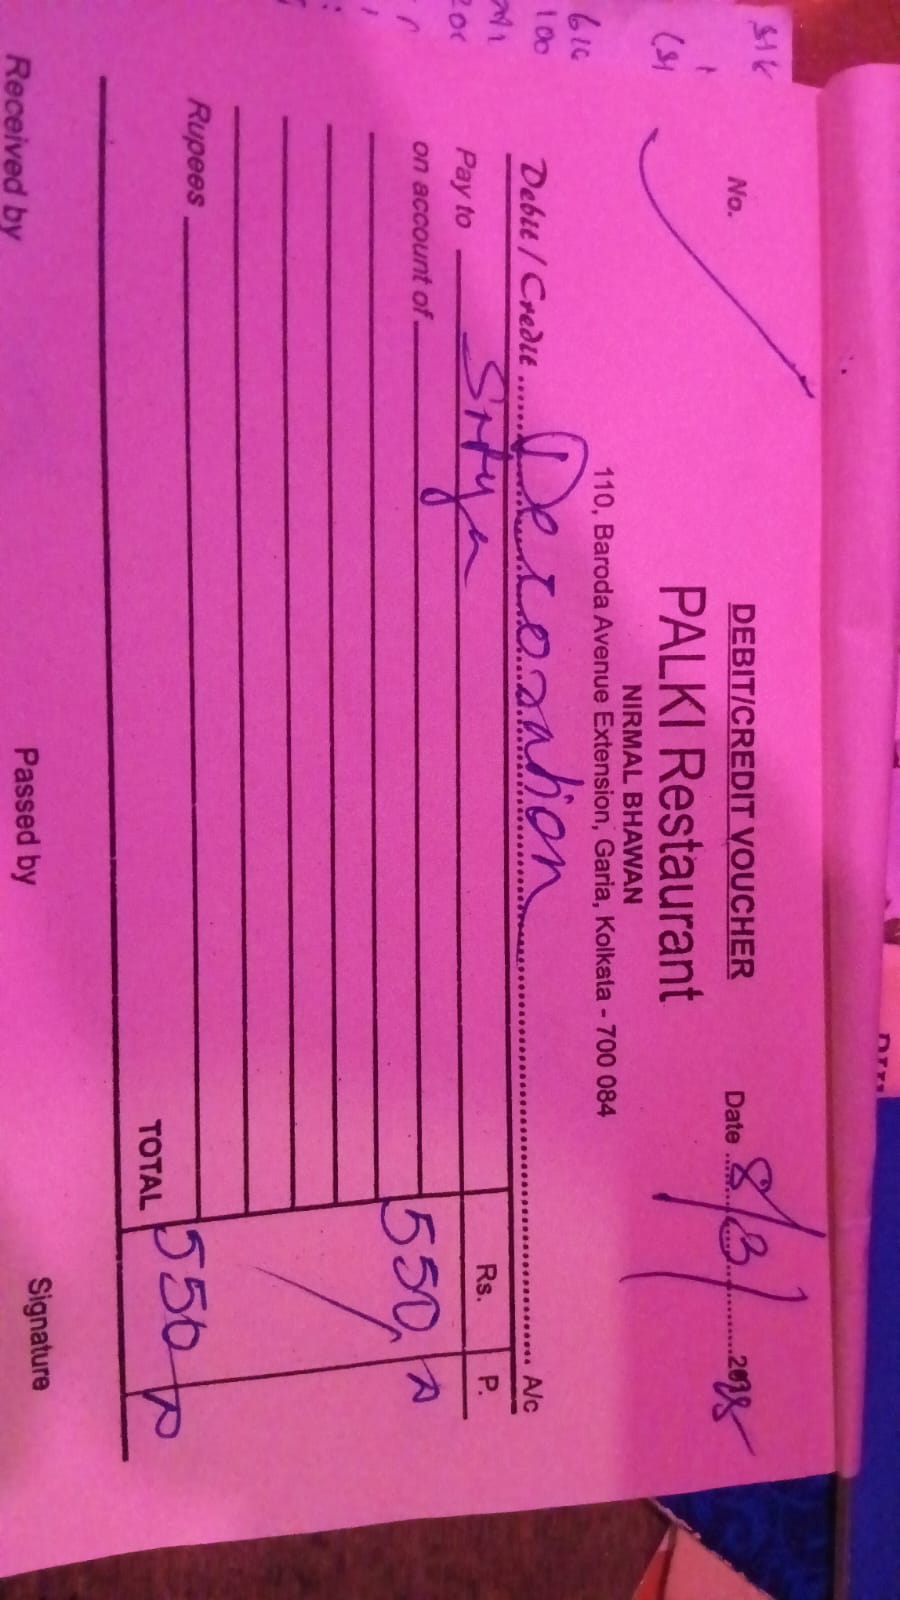 DEBIT/CREDIT VOUCHER
No.
Date 8/3/
PALKI Restaurant
NIRMAL BHAWAN
110, Baroda Avenue Extension, Garia, Kolkata - 700 084
Debit / Credit Decoration A/c
Pay to Rs. P.
on account of 550
Rupees
TOTAL 550
Received by Passed by Signature